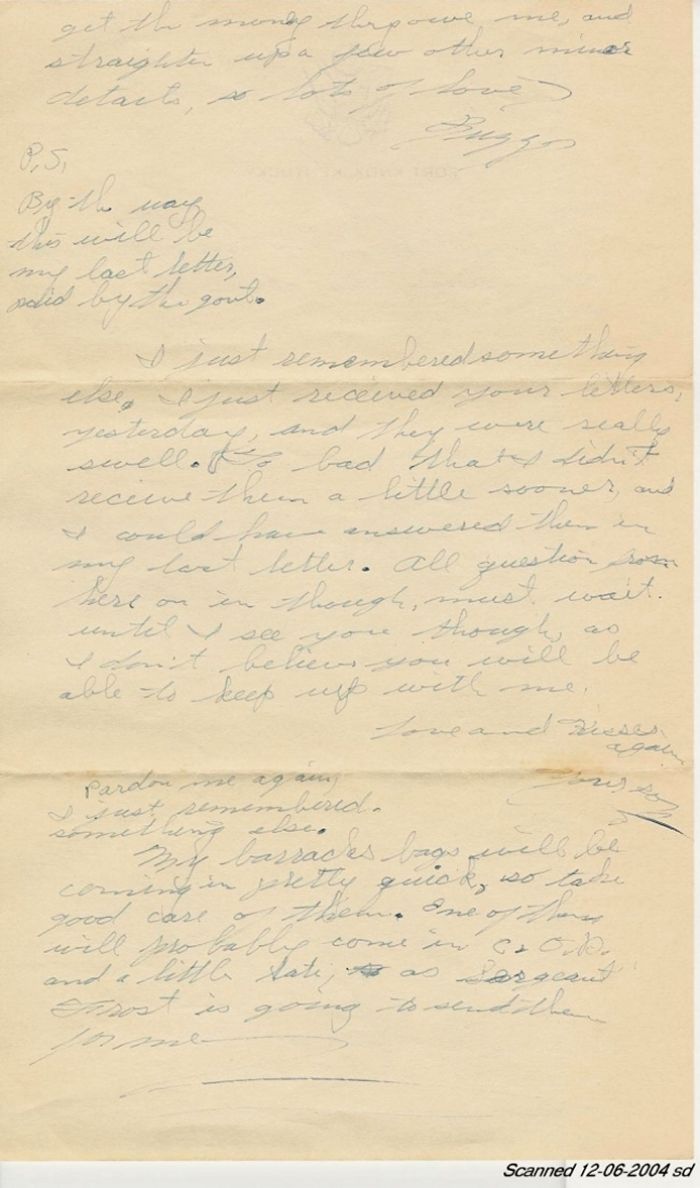 get the money they owe me, and
straighten up a few other minor
details, so lots of love
Buggs
P.S,
By the way
this will be
my last letter,
paid by the govt.
I just remembered something
else, I just received your letters,
yesterday, and they were really
swell. To bad that I didn't
receive them a little sooner, and
I could have answered them in
my last letter. All question from
here on in though, must wait.
until I see you though, as
I don't believe you will be
able to keep up with me.
Love and Kisses
again
your son
Pardon me again,
I just remembered.
something else.
My barracks bags will be
coming in pretty quick, so take
good care of them. One of them
will probably come in C.O.D.
and a little late, as Sargeant
Frost is going to send them
for me
FORT KNOX, KENTUCKY
Scanned 12-06-2004 sd